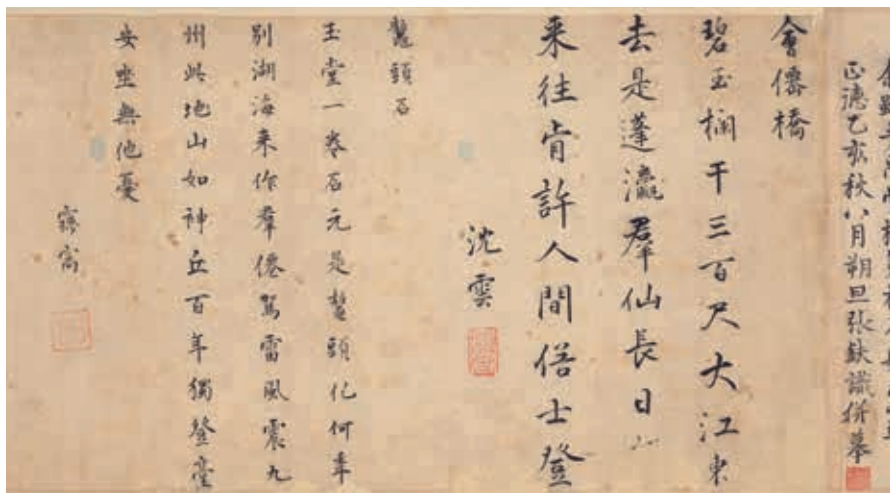 正德乙亥秋八月朔旦張鈇識併摹
會僊橋
碧玉欄干三百尺大江東
去是蓬瀛羣仙長日
来往肯許人間俗士登
沈雲
鰲頭石
玉堂一卷石元是鰲頭化何年
別湖海来作羣僊駕雷風震九
州此地山如神丘百年獨登臺
安坐無他憂